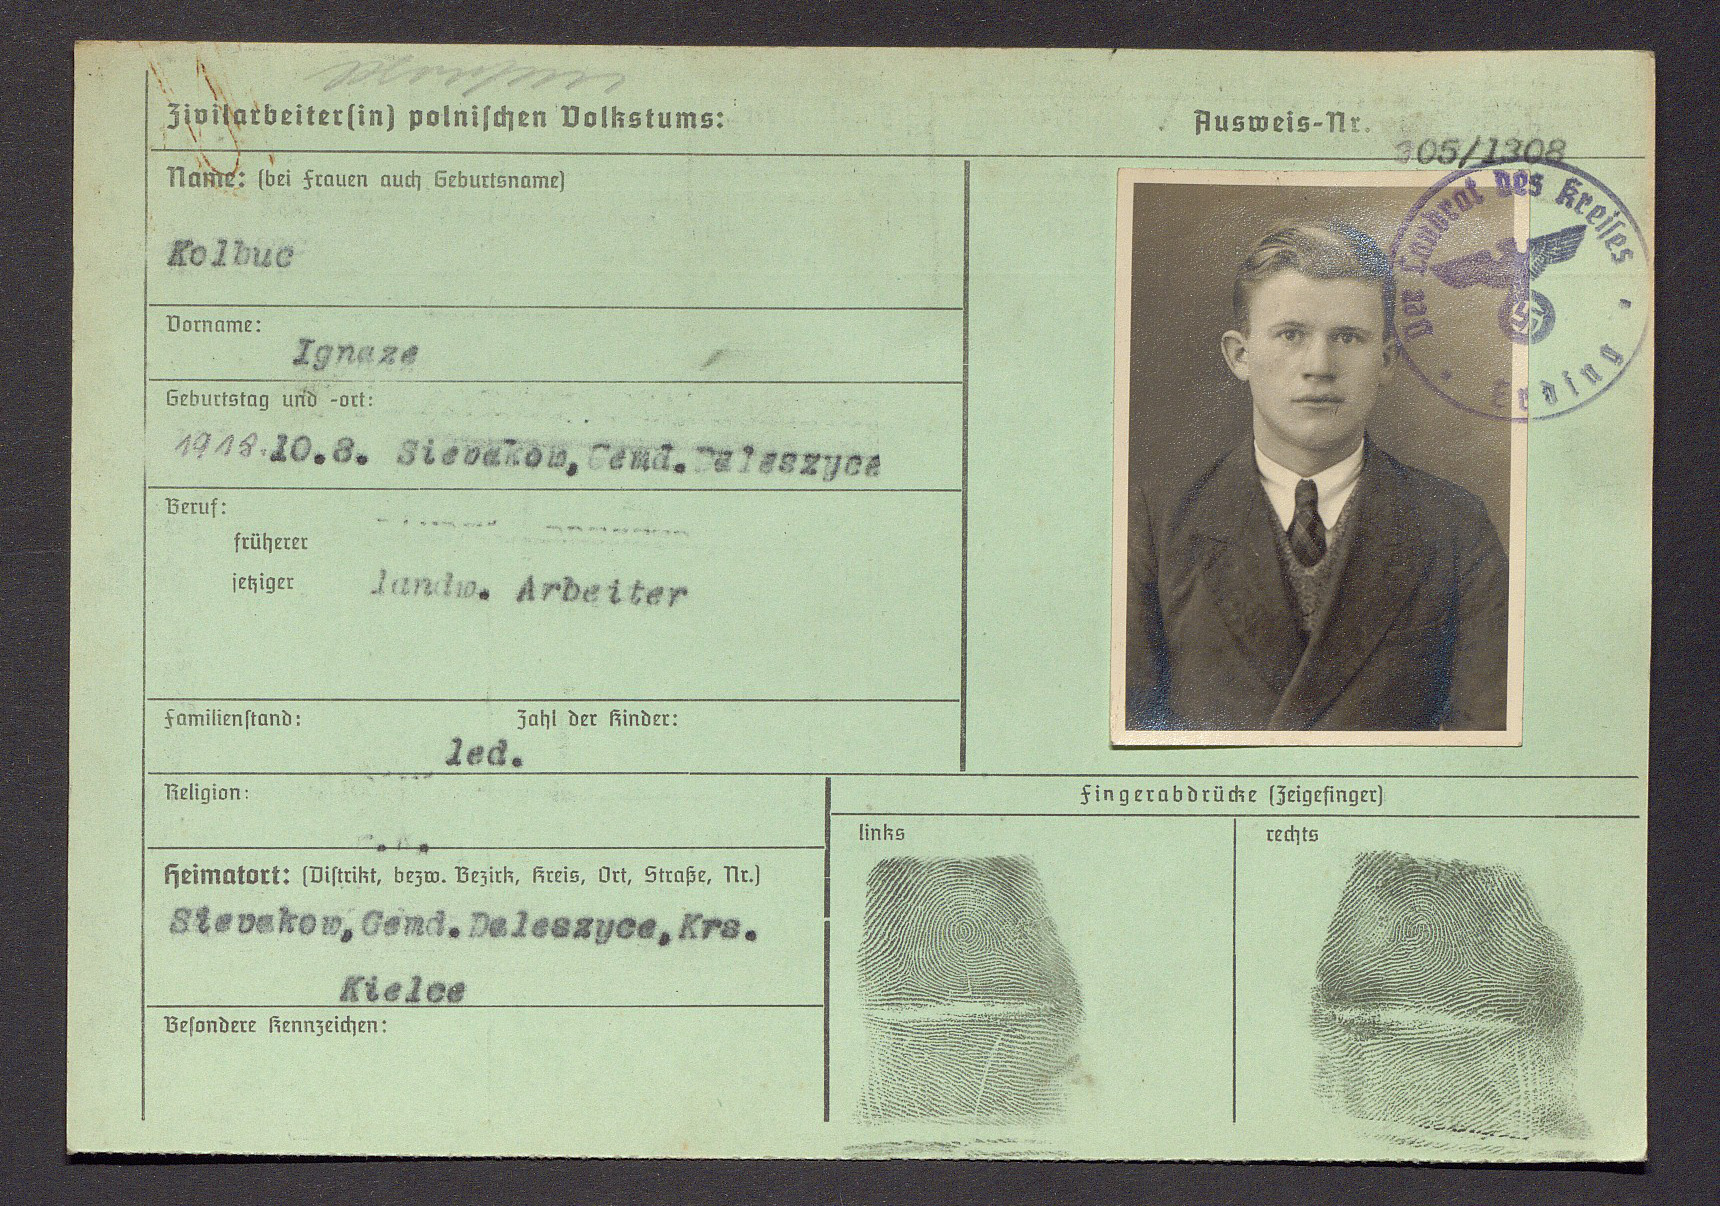 Zivilarbeiter(in) polnischen Volkstums:
Ausweis-Nr.
305/1308
Name: (bei Frauen auch Geburtsname)
Kolbuc
Vorname:
Ignaze
Geburtstag und -ort:
1918. 10.8. Sievakow, Gemd. Daleszyce
Beruf:
früherer
jetziger landw. Arbeiter
Familienstand: Zahl der Kinder:
led.
Religion:
Heimatort: (Distrikt, bezw. Bezirk, Kreis, Ort, Straße, Nr.)
Sievakow, Gemd. Daleszyce, Krs.
Kielce
Besondere Kennzeichen:
Der Landrat des Kreises
Erding
Fingerabdrücke (Zeigefinger)
links rechts